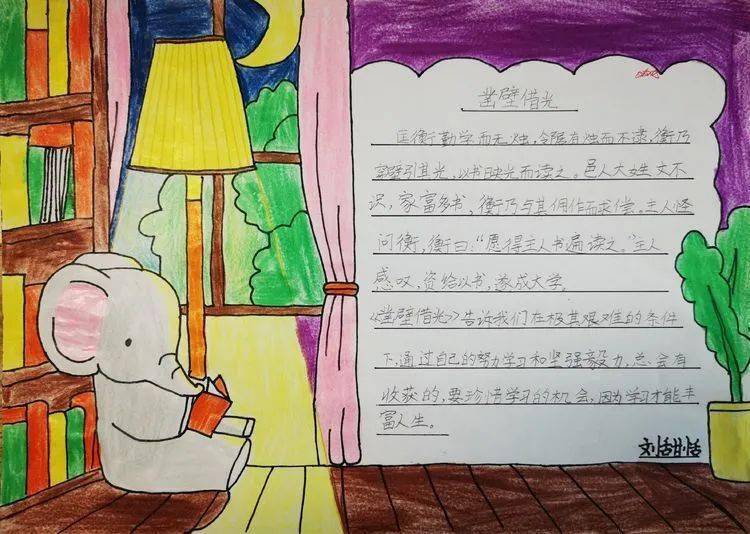 凿壁借光
匡衡勤学而无烛，邻居有烛而不逮，衡乃
穿壁引其光，以书映光而读之。邑人大姓文不
识，家富多书，衡乃与其佣作而求偿。主人怪
问衡，衡曰：“愿得主人书遍读之。”主人
感叹，资给以书，遂成大学。
《凿壁借光》告诉我们在极其艰难的条件
下，通过自己的努力学习和坚强毅力，总会有
收获的，要珍惜学习的机会，因为学习才能丰
富人生。